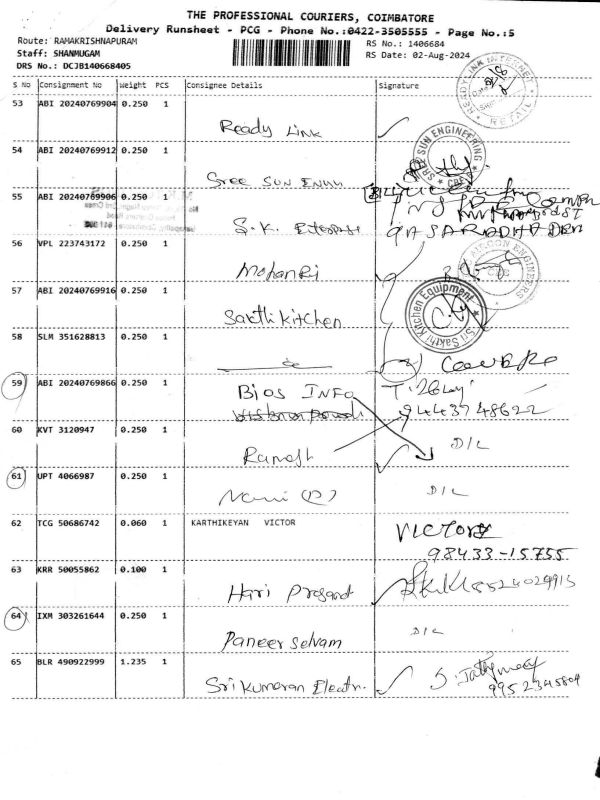 THE PROFESSIONAL COURIERS, COIMBATORE
Delivery Runsheet - PCG - Phone No.:0422-3505555 - Page No.:5
Route: RAMAKRISHNAPURAM
RS No.: 1406684
Staff: SHANMUGAM
RS Date: 02-Aug-2024
DRS No.: DCJB140668405
S No Consignment No Weight PCS Consignee Details Signature
53 ABI 20240769904 0.250 1
Ready Link
READYLINK INTERNET RETAIL
54 ABI 20240769912 0.250 1
Sree Sun
SREE SUN ENGINEERING CBE
55 ABI 20240769906 0.250 1
S.K.
56 VPL 223743172 0.250 1
Mohan
AIRCON ENGINEERS
57 ABI 20240769916 0.250 1
Sakthi Kitchen
Sri Sakthi Kitchen Equipment
58 SLM 351628813 0.250 1
59 ABI 20240769866 0.250 1
Bios INFO
9443748622
60 KVT 3120947 0.250 1
Ramesh
D/L
61 UPT 4066987 0.250 1
Mani (P)
D/L
62 TCG 50686742 0.060 1 KARTHIKEYAN VICTOR
VICTOR
98433-15755
63 KRR 50055862 0.100 1
Hari Prasand
64 IXM 303261644 0.250 1
Paneer Selvam
D/L
65 BLR 490922999 1.235 1
Sri Kumaran Electri.
9952345804